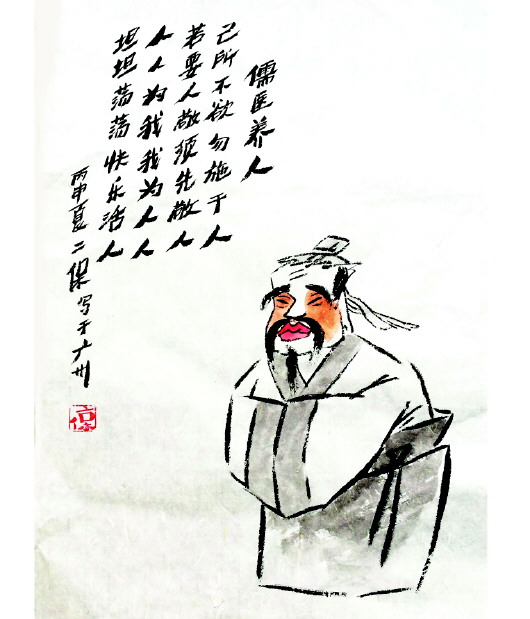 儒医养人
己所不欲勿施于人
若要人敬须先敬人
人人为我我为人人
坦坦荡荡快乐活人
丙申夏二保写于广州